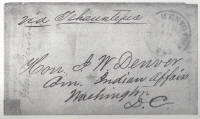 via Tehauntepec
Hon. J W Denver
Com. Indian Affairs
Washington
D.C.